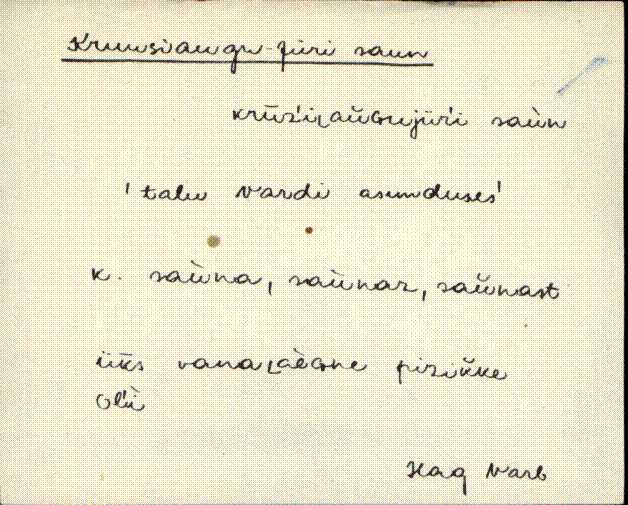 Kruusiaugu-Jüri saun
krūz'iʟaùGujüŕi saùn
'talu Vardi asunduses'
k. saùna, saùnaz, saùnast
ük̄s vanaʟàèGne pizikke
oĺì
Hag Varb